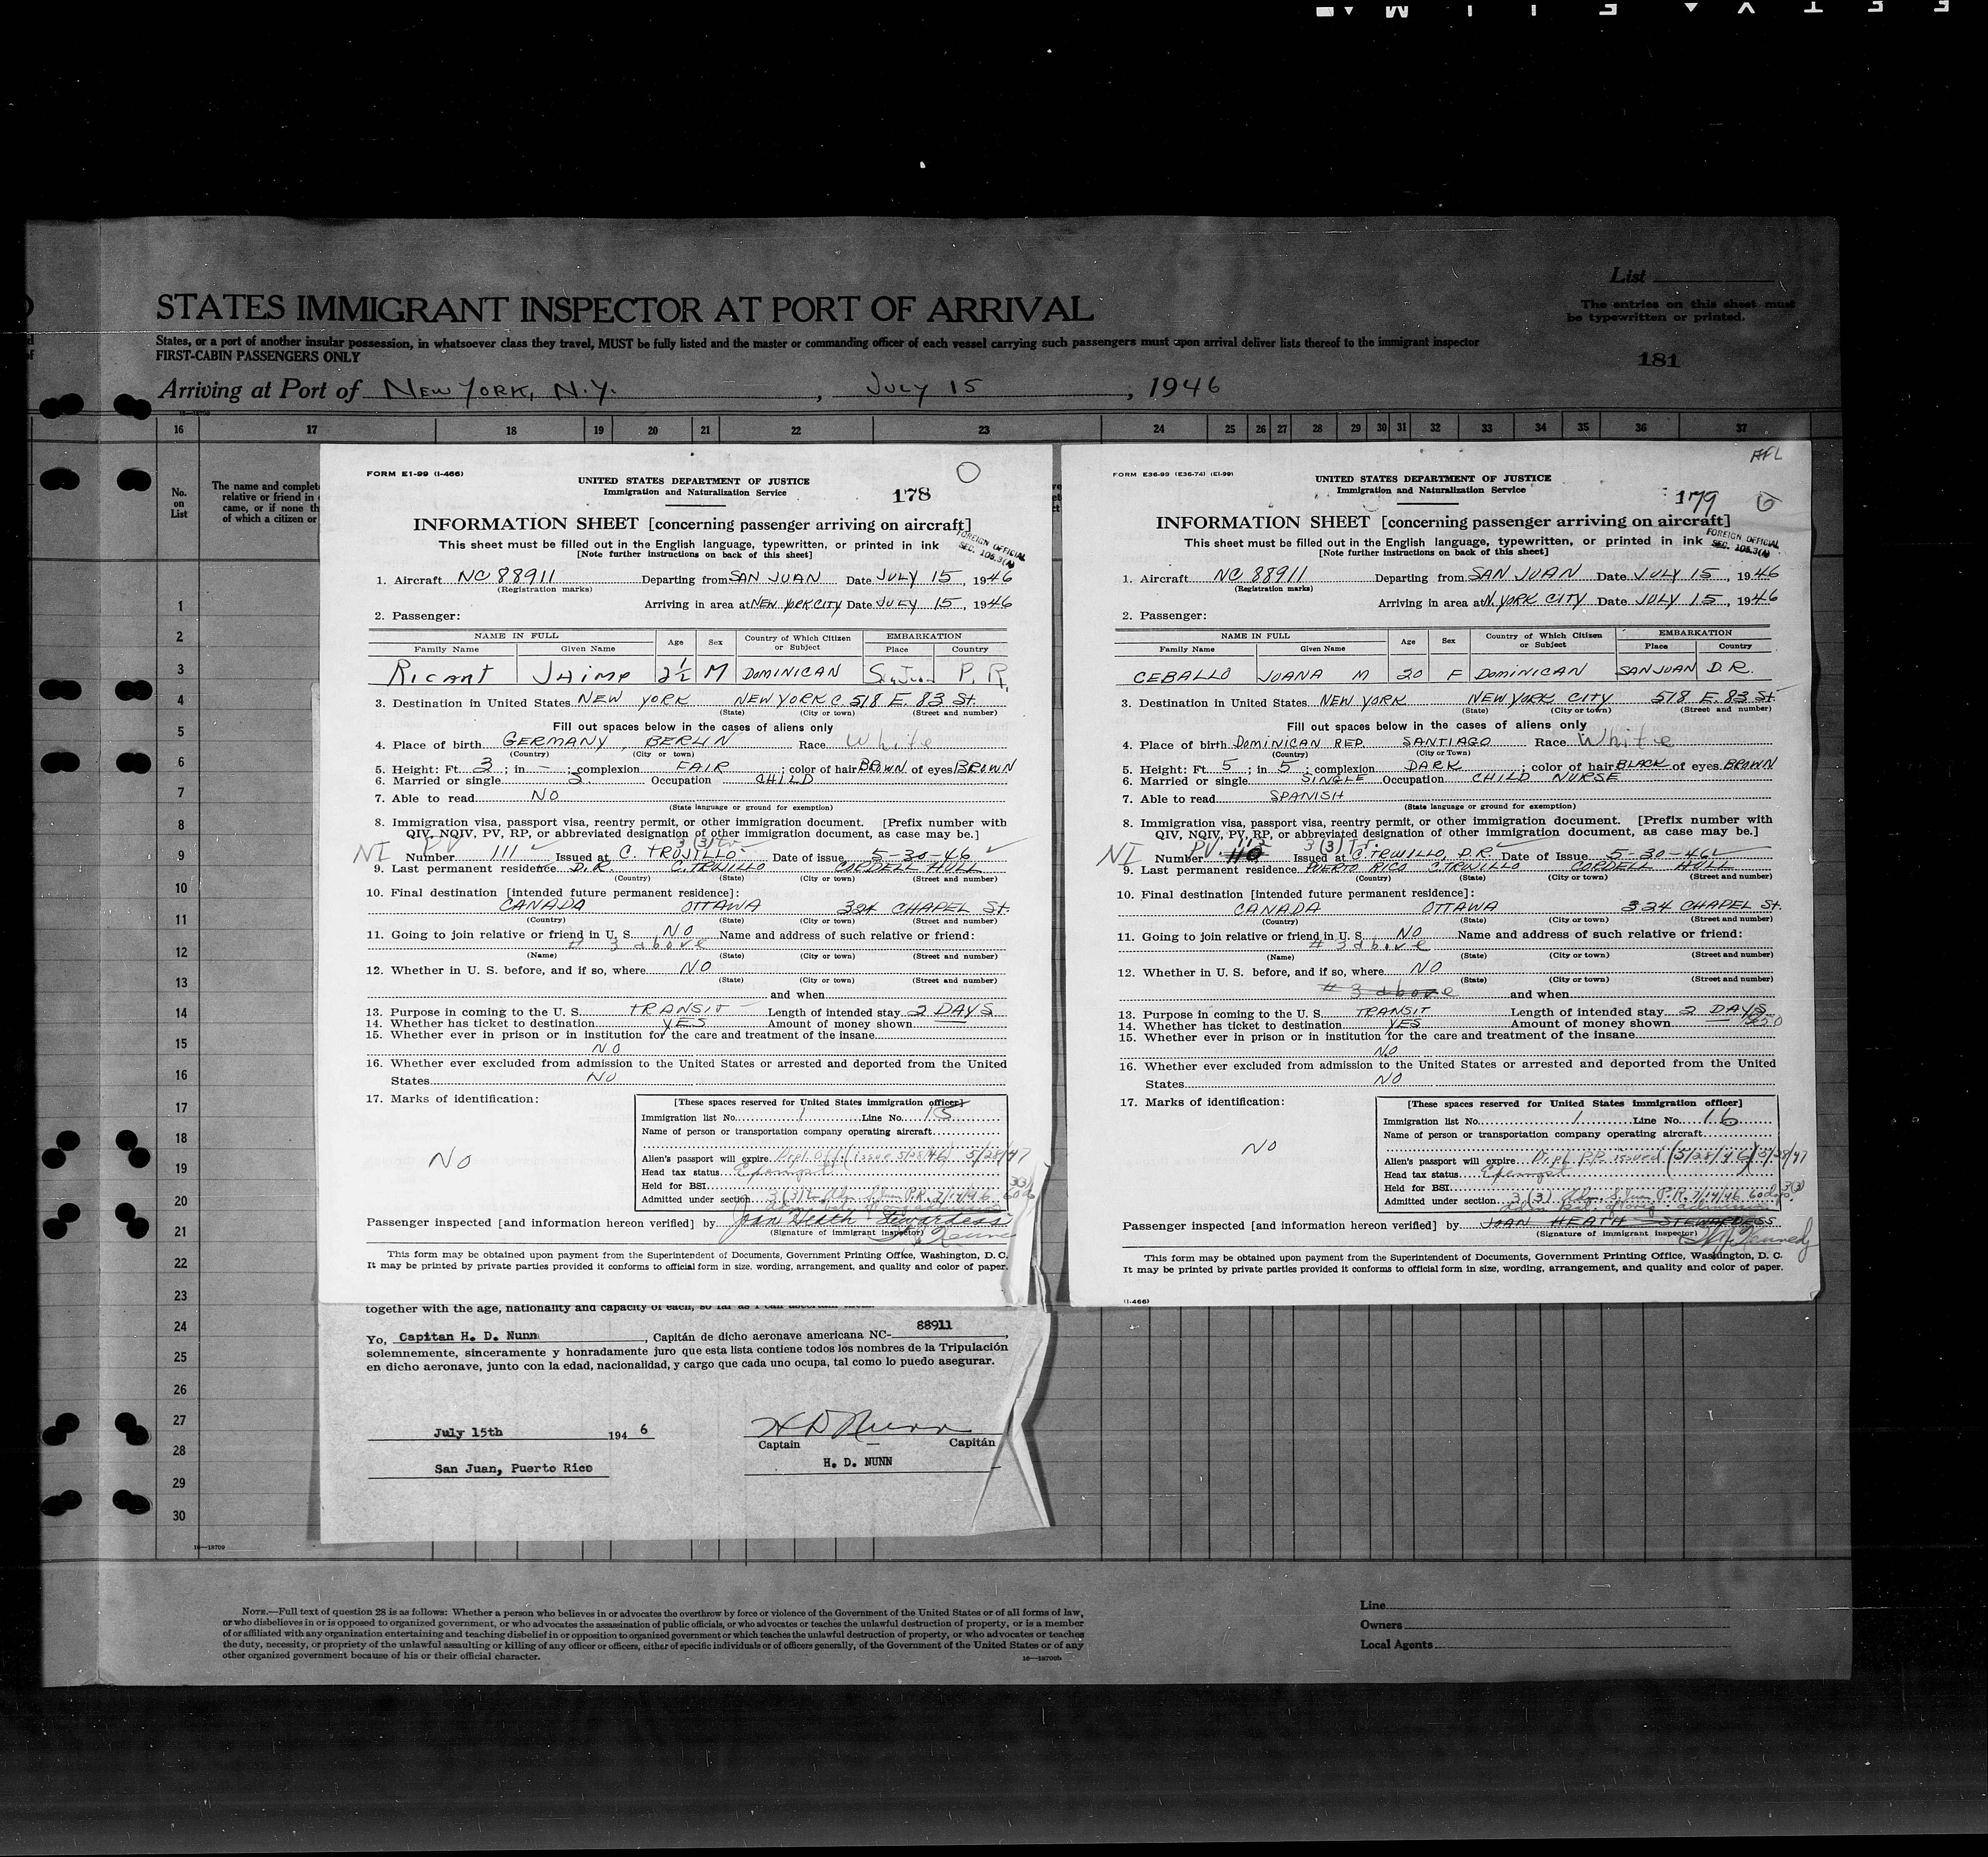 List
STATES IMMIGRANT INSPECTOR AT PORT OF ARRIVAL
The entries on this sheet must
be typewritten or printed.
States, or a port of another insular possession, in whatsoever class they travel, MUST be fully listed and the master or commanding officer of each vessel carrying such passengers must upon arrival deliver lists thereof to the immigrant inspector
FIRST-CABIN PASSENGERS ONLY
181
Arriving at Port of NEW YORK, N.Y. , JULY 15 , 1946
16 17 18 19 20 21 22 23 24 25 26 27 28 29 30 31 32 33 34 35 36 37
No.
on
List
The name and complet
relative or friend in
came, or if none th
of which a citizen or
1
2
3
4
5
6
7
8
9
10
11
12
13
14
15
16
17
18
19
20
21
22
23
24
25
26
27
28
29
30
16—18709
FORM E1-99 (I-466)
UNITED STATES DEPARTMENT OF JUSTICE
Immigration and Naturalization Service
178
INFORMATION SHEET [concerning passenger arriving on aircraft]
This sheet must be filled out in the English language, typewritten, or printed in ink
[Note further instructions on back of this sheet]
FOREIGN OFFICIAL
SEC. 105.3(A)
1. Aircraft NC 88911 Departing from SAN JUAN Date JULY 15, 1946
(Registration marks)
Arriving in area at NEW YORK CITY Date JULY 15, 1946
2. Passenger:
NAME IN FULL Age Sex Country of Which Citizen or Subject EMBARKATION
Family Name Given Name Place Country
RICANT JAIME 2½ M DOMINICAN S. Juan P. R.
3. Destination in United States NEW YORK NEW YORK C. 518 E. 83 St.
(State) (City or town) (Street and number)
Fill out spaces below in the cases of aliens only
4. Place of birth GERMANY, BERLIN Race White
(Country) (City or town)
5. Height: Ft. 3 ; in. - ; complexion FAIR ; color of hair BROWN of eyes BROWN
6. Married or single S Occupation CHILD
7. Able to read NO
(State language or ground for exemption)
8. Immigration visa, passport visa, reentry permit, or other immigration document. [Prefix number with
QIV, NQIV, PV, RP, or abbreviated designation of other immigration document, as case may be.]
PV 3(3)Tr
NI Number 111 Issued at C. TRUJILLO Date of issue 5-30-46
9. Last permanent residence D.R. C. TRUJILLO CORDELL HULL
(Country) (State) (City or town) (Street and number)
10. Final destination [intended future permanent residence]:
CANADA OTTAWA 324 CHAPEL St.
(Country) (State) (City or town) (Street and number)
11. Going to join relative or friend in U. S. NO Name and address of such relative or friend:
# 3 above
(Name) (State) (City or town) (Street and number)
12. Whether in U. S. before, and if so, where NO
(State) (City or town) (Street and number)
and when
13. Purpose in coming to the U. S. TRANSIT Length of intended stay 2 DAYS
14. Whether has ticket to destination YES Amount of money shown
15. Whether ever in prison or in institution for the care and treatment of the insane
NO
16. Whether ever excluded from admission to the United States or arrested and deported from the United
States NO
17. Marks of identification:
NO
[These spaces reserved for United States immigration officer]
Immigration list No. 1 Line No. 15
Name of person or transportation company operating aircraft
Alien's passport will expire 5/28/47
Head tax status Exempt
Held for BSI
Admitted under section 3(3) Adm. S. Juan P.R. 7/14/46 60 ds
Passenger inspected [and information hereon verified] by Joan Heath Stewardess
(Signature of immigrant inspector)
This form may be obtained upon payment from the Superintendent of Documents, Government Printing Office, Washington, D. C.
It may be printed by private parties provided it conforms to official form in size, wording, arrangement, and quality and color of paper.
together with the age, nationality and capacity of each, so far as I can ascertain them.
Yo, Capitan H. D. Nunn , Capitán de dicho aeronave americana NC- 88911 ,
solemnemente, sinceramente y honradamente juro que esta lista contiene todos los nombres de la Tripulación
en dicho aeronave, junto con la edad, nacionalidad, y cargo que cada uno ocupa, tal como lo puedo asegurar.
July 15th 194 6
H D Nunn
Captain — Capitán
San Juan, Puerto Rico
H. D. NUNN
AFL
FORM E36-99 (E36-74) (E1-99)
UNITED STATES DEPARTMENT OF JUSTICE
Immigration and Naturalization Service
179
INFORMATION SHEET [concerning passenger arriving on aircraft]
This sheet must be filled out in the English language, typewritten, or printed in ink
[Note further instructions on back of this sheet]
FOREIGN OFFICIAL
SEC. 105.3(A)
1. Aircraft NC 88911 Departing from SAN JUAN Date JULY 15, 1946
(Registration marks)
Arriving in area at N. YORK CITY Date JULY 15, 1946
2. Passenger:
NAME IN FULL Age Sex Country of Which Citizen or Subject EMBARKATION
Family Name Given Name Place Country
CEBALLO JUANA M 20 F DOMINICAN SAN JUAN D.R.
3. Destination in United States NEW YORK NEW YORK CITY 518 E. 83 St
(State) (City or town) (Street and number)
Fill out spaces below in the cases of aliens only
4. Place of birth DOMINICAN REP. SANTIAGO Race White
(Country) (City or Town)
5. Height: Ft. 5 ; in. 5 ; complexion DARK ; color of hair BLACK of eyes BROWN
6. Married or single SINGLE Occupation CHILD NURSE
7. Able to read SPANISH
(State language or ground for exemption)
8. Immigration visa, passport visa, reentry permit, or other immigration document. [Prefix number with
QIV, NQIV, PV, RP, or abbreviated designation of other immigration document, as case may be.]
PV 3(3)Tr.
NI Number 110 Issued at C. TRUJILLO, D.R. Date of Issue 5-30-46
9. Last permanent residence PUERTO RICO C. TRUJILLO CORDELL HULL
(Country) (State) (City or town) (Street and number)
10. Final destination [intended future permanent residence]:
CANADA OTTAWA 324 CHAPEL St.
(Country) (State) (City or town) (Street and number)
11. Going to join relative or friend in U. S. NO Name and address of such relative or friend:
# 3 above
(Name) (State) (City or town) (Street and number)
12. Whether in U. S. before, and if so, where NO
(State) (City or town) (Street and number)
# 3 above and when
13. Purpose in coming to the U. S. TRANSIT Length of intended stay 2 DAYS
14. Whether has ticket to destination YES Amount of money shown
15. Whether ever in prison or in institution for the care and treatment of the insane
NO
16. Whether ever excluded from admission to the United States or arrested and deported from the United
States NO
17. Marks of identification:
NO
[These spaces reserved for United States immigration officer]
Immigration list No. 1 Line No. 16
Name of person or transportation company operating aircraft
Alien's passport will expire Dipl. P.P. issued (5/28/46) 5/28/47
Head tax status Exempt
Held for BSI
Admitted under section 3(3) Adm. S. Juan P.R. 7/14/46 60 days
Adm. Bal. of orig. admission
Passenger inspected [and information hereon verified] by JOAN HEATH STEWARDESS
(Signature of immigrant inspector)
Kennedy
This form may be obtained upon payment from the Superintendent of Documents, Government Printing Office, Washington, D. C.
It may be printed by private parties provided it conforms to official form in size, wording, arrangement, and quality and color of paper.
(I-466)
NOTE.—Full text of question 28 is as follows: Whether a person who believes in or advocates the overthrow by force or violence of the Government of the United States or of all forms of law,
or who disbelieves in or is opposed to organized government, or who advocates the assassination of public officials, or who advocates or teaches the unlawful destruction of property, or is a member
of or affiliated with any organization entertaining and teaching disbelief in or opposition to organized government or which teaches the unlawful destruction of property, or who advocates or teaches
the duty, necessity, or propriety of the unlawful assaulting or killing of any officer or officers, either of specific individuals or of officers generally, of the Government of the United States or of any
other organized government because of his or their official character.
16—18709b
Line
Owners
Local Agents